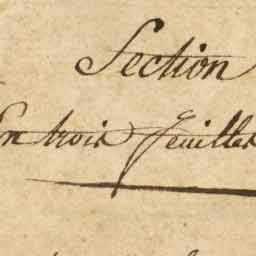 Section
En trois Feuilles